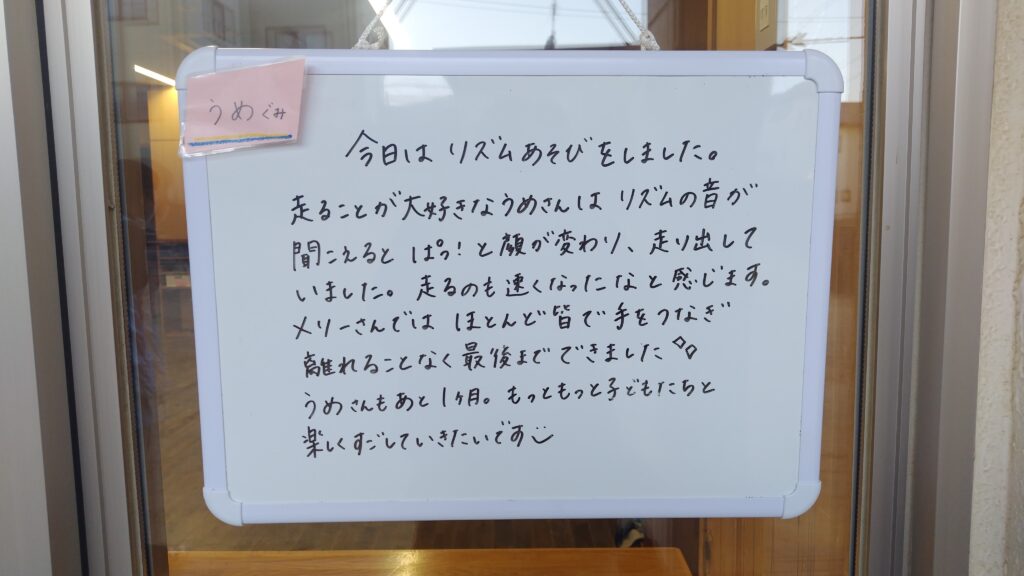 うめぐみ
今日は リズムあそびをしました。
走ることが大好きなうめさんは リズムの音が
聞こえると ぱっ!と顔が変わり、走り出して
いました。走るのも速くなったなと感じます。
メリーさんでは ほとんど皆で手をつなぎ
離れることなく最後までできました
うめさんもあと1ヶ月。もっともっと子どもたちと
楽しくすごしていきたいです